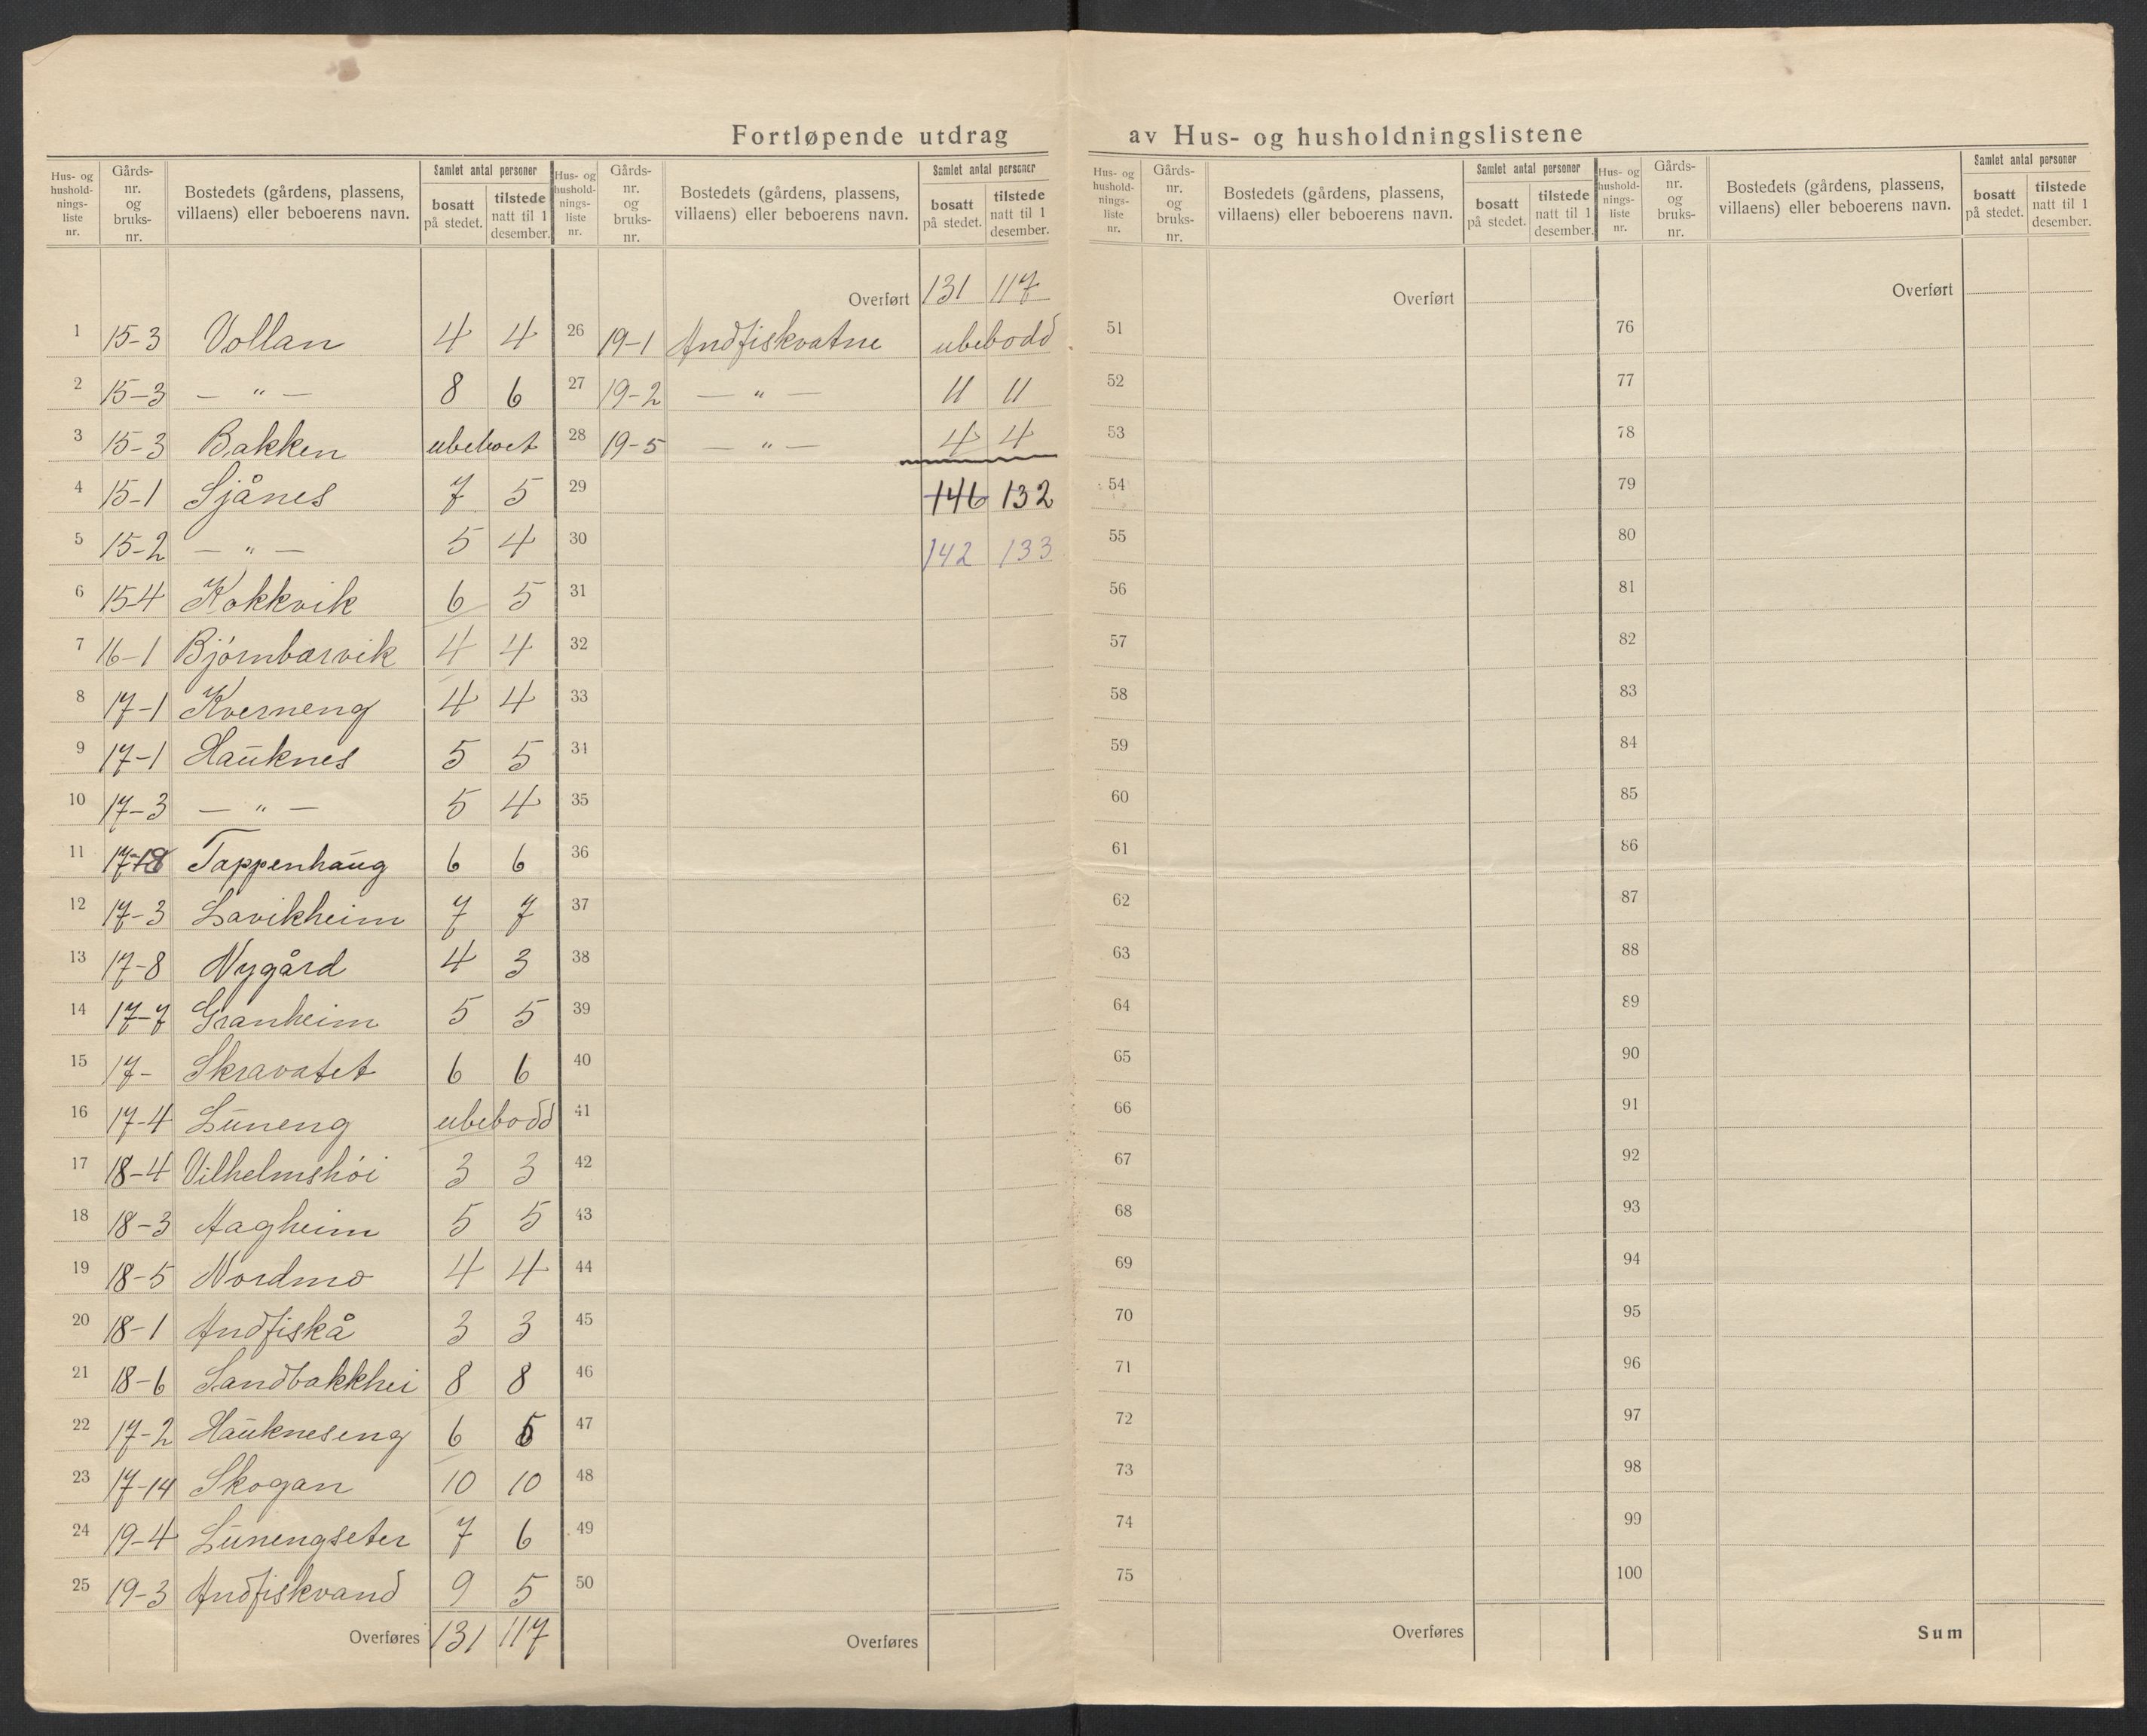 Fortløpende utdrag av Hus- og husholdningslistene
Hus- og hushold-nings-liste nr. Gårds-nr. og bruks-nr. Bostedets (gårdens, plassens, villaens) eller beboerens navn. Samlet antal personer bosatt på stedet. tilstede natt til 1 desember.
1 15-3 Vollan 4 4
2 15-3 — " — 8 6
3 15-3 Bakken ubeboet
4 15-1 Sjånes 7 5
5 15-2 — " — 5 4
6 15-4 Kokkvik 6 5
7 16-1 Bjørnbærvik 4 4
8 17-1 Kverneng 4 4
9 17-1 Hauknes 5 5
10 17-3 — " — 5 4
11 Tappenhaug 6 6
12 17-3 Lavikheim 7 7
13 17-8 Nygård 4 3
14 17-7 Granheim 5 5
15 17- Skravatet 6 6
16 17-4 Luneng ubebodd
17 18-4 Vilhelmshöi 3 3
18 18-3 Aagheim 5 5
19 18-5 Nordmo 4 4
20 18-1 Andfiskå 3 3
21 18-6 Sandbakkhei 8 8
22 17-2 Haukneseng 6 5
23 17-14 Skogan 10 10
24 19-4 Lunengseter 7 6
25 19-3 Andfiskvand 9 5
Overføres 131 117
Hus- og hushold-nings-liste nr. Gårds-nr. og bruks-nr. Bostedets (gårdens, plassens, villaens) eller beboerens navn. Samlet antal personer bosatt på stedet. tilstede natt til 1 desember.
Overført 131 117
26 19-1 Andfiskvatne ubebodd
27 19-2 — " — 11 11
28 19-5 — " — 4 4
29 146 132
30 142 133
31
32
33
34
35
36
37
38
39
40
41
42
43
44
45
46
47
48
49
50
Overføres
Hus- og hushold-nings-liste nr. Gårds-nr. og bruks-nr. Bostedets (gårdens, plassens, villaens) eller beboerens navn. Samlet antal personer bosatt på stedet. tilstede natt til 1 desember.
Overført
51
52
53
54
55
56
57
58
59
60
61
62
63
64
65
66
67
68
69
70
71
72
73
74
75
Overføres
Hus- og hushold-nings-liste nr. Gårds-nr. og bruks-nr. Bostedets (gårdens, plassens, villaens) eller beboerens navn. Samlet antal personer bosatt på stedet. tilstede natt til 1 desember.
Overført
76
77
78
79
80
81
82
83
84
85
86
87
88
89
90
91
92
93
94
95
96
97
98
99
100
Sum